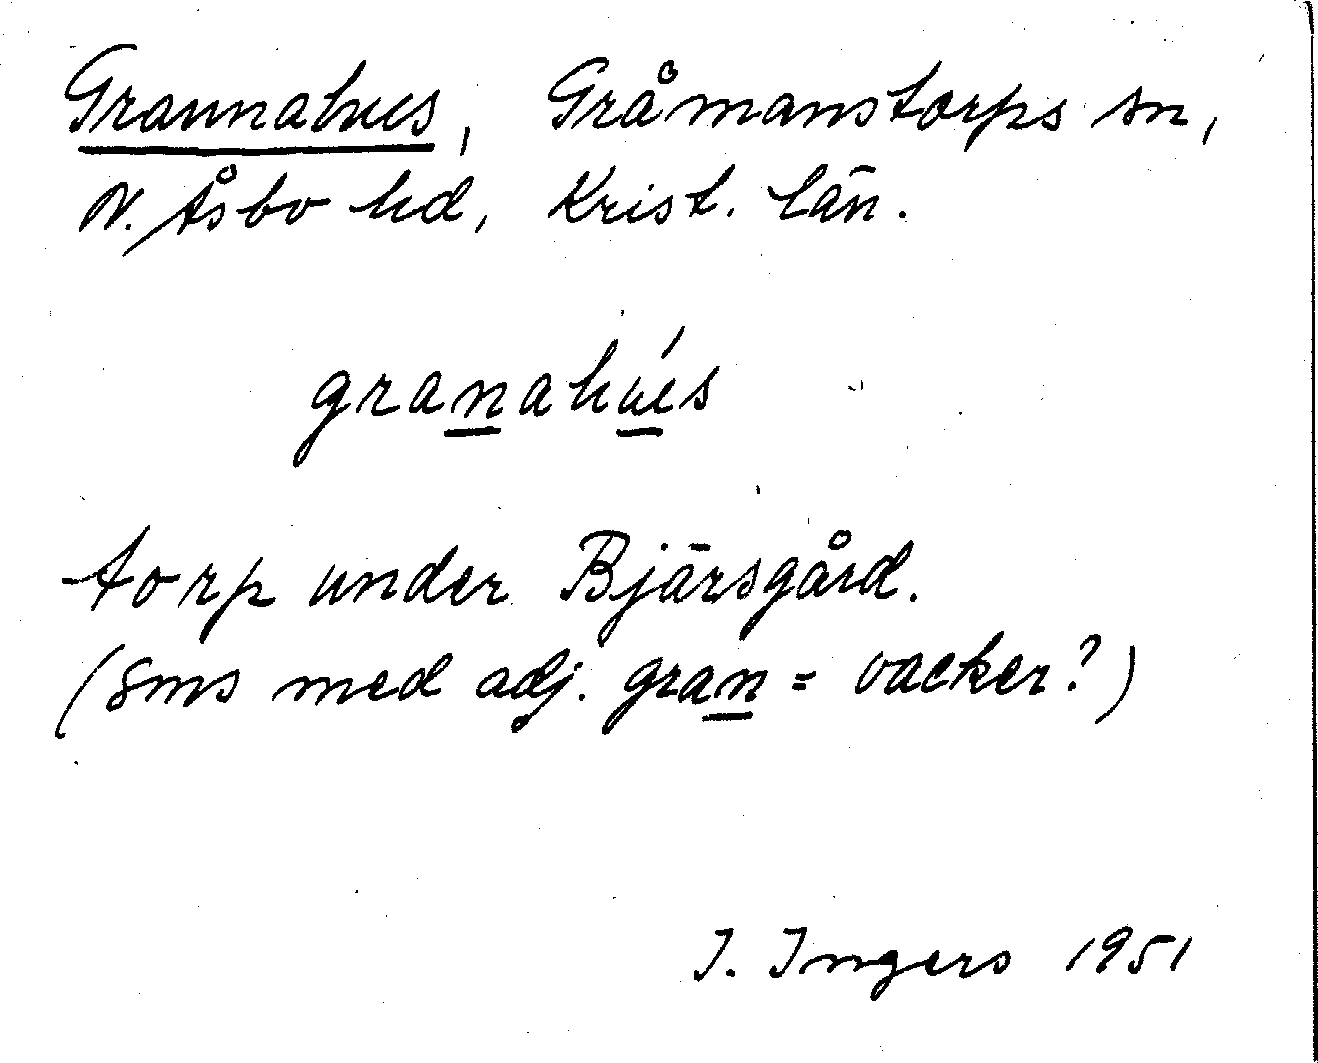 Grannahus, Gråmanstorps sn,
N. Åsbo hd, Krist. län.
granahús
torp under Bjärsgård.
(Sms med adj. gran = vacker?)
I. Ingers 1951